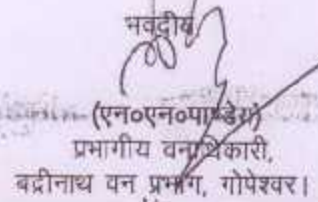 भवदीय
(एन०एन०पाण्डेय)
प्रभागीय वनाधिकारी,
बद्रीनाथ वन प्रभाग, गोपेश्वर।